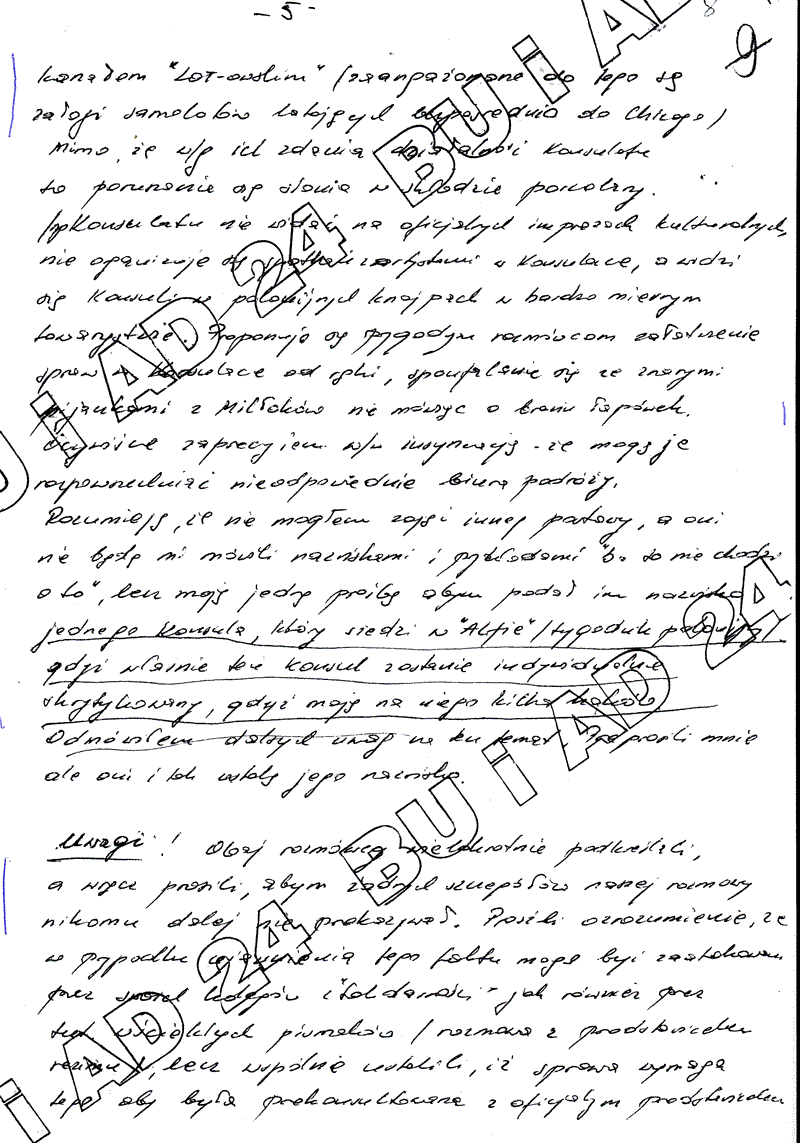 - 5 -
8
9
kanałem "LOT-owskim" (zaangażowane do tego są
załogi samolotów latających bezpośrednio do Chicago)
Mimo, że w/g ich zdania działalność Konsulatu
to poruszanie się słonia w składzie porcelany.
Konsulatu nie widać na oficjalnych imprezach kulturalnych,
nie organizuje się spotkań z artystami w Konsulacie, a widzi
się Konsulów w polonijnych knajpach w bardzo miernym
towarzystwie. Proponują się przygodnym rozmówcom załatwienie
spraw w Konsulacie od ręki, spoufalanie się ze znanymi
pijaczkami z Milłoków nie mówiąc o braniu łapówek.
Oczywiście zaprzeczyłem w/w insynuacją - że mogą je
rozpowszechniać nieodpowiednie biura podróży.
Rozumieją, że nie mogłem zająć innej postawy, a oni
nie będą mi mówili nazwiskami i przykładami "bo to nie chodzi
o to", lecz mają jedną prośbę abym podał im nazwisko
jednego Konsula, który siedzi w "Alfie" /tygodnik polonijny/
gdyż właśnie ten konsul zostanie indywidualnie
skrytykowany, gdyż mają na niego kilka haków
Odmówiłem dalszych uwag na ten temat. Przeprosili mnie
ale oni i tak ustalą jego nazwisko.
Uwagi! Obaj rozmówcy wielokrotnie podkreślali,
a wręcz prosili, abym żadnych szczegółów naszej rozmowy
nikomu dalej nie przekazywał. Prosili o zrozumienie, że
w przypadku ujawnienia tego faktu mogą być zaatakowani
przez swoich kolegów z "Solidarności" jak również przez
tych wściekłych pismaków / rozmowa z przedstawicielem
reżimu /, lecz wspólnie ustalili, iż sprawa wymaga
tego aby była przekonsultowana z oficjalnym przedstawicielem
BU i AD 24 BU i AD 24
BU i AD 24 BU i AD 24